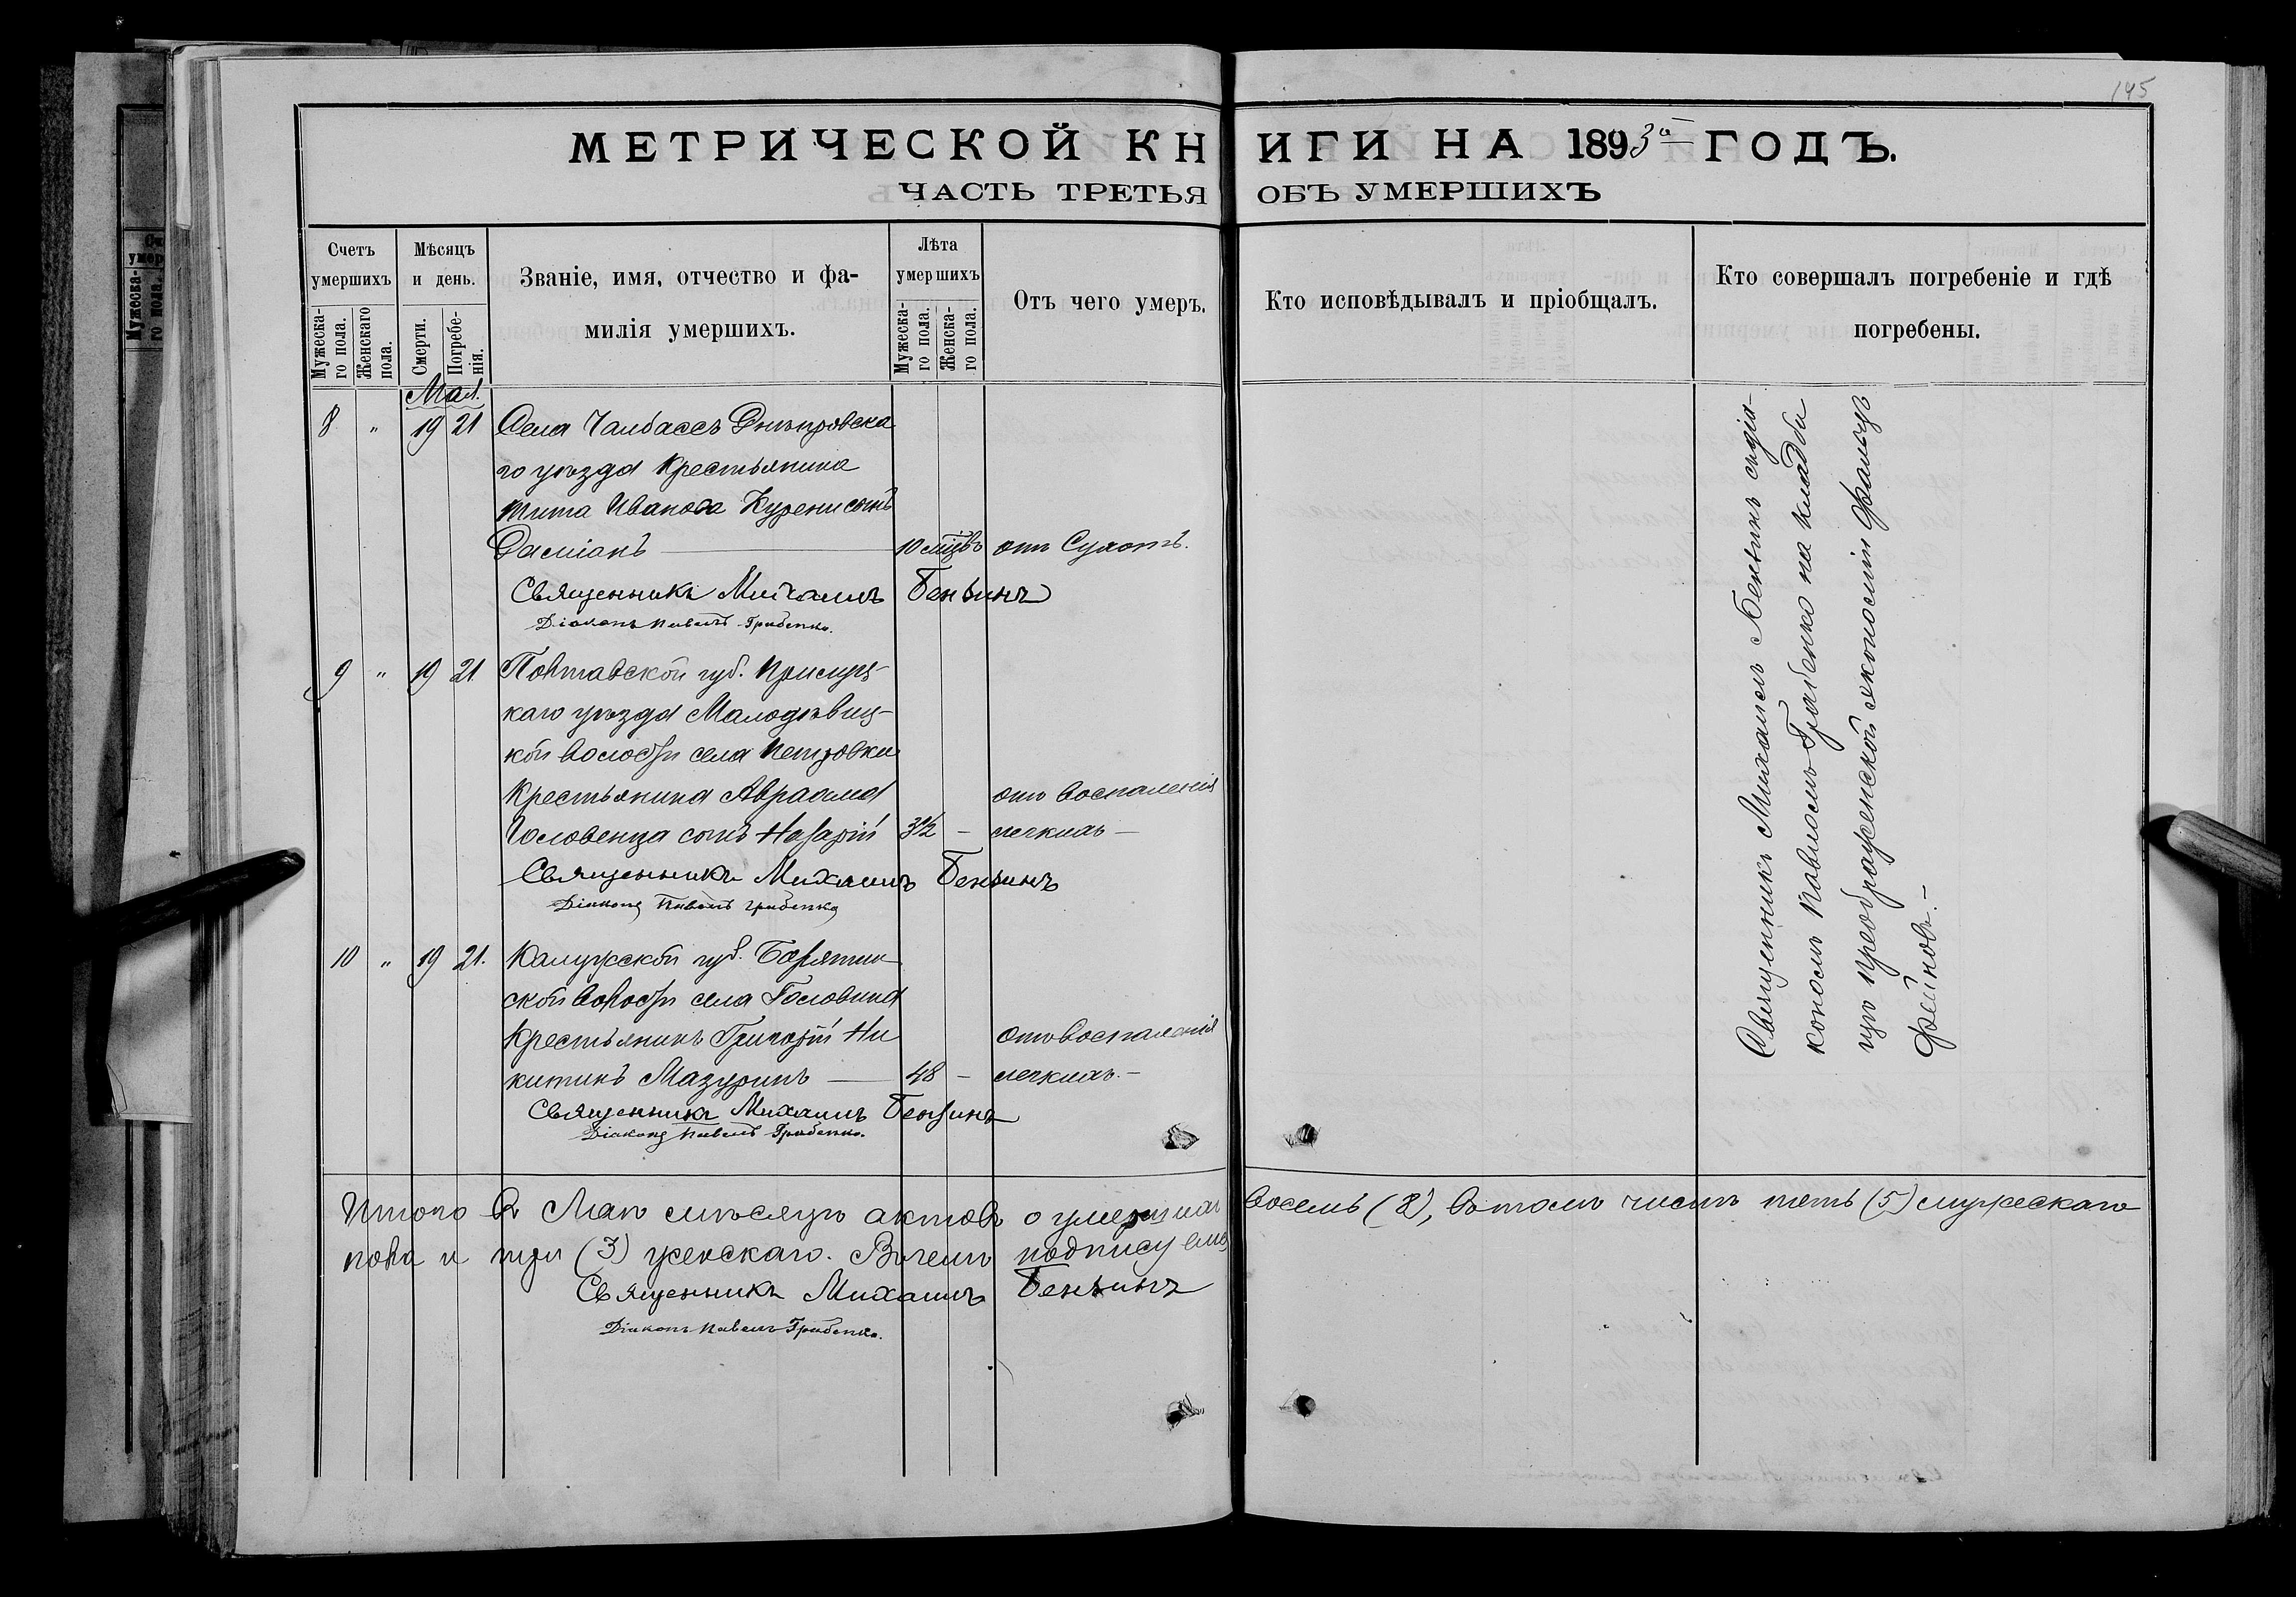 145
МЕТРИЧЕСКОЙ КНИГИ НА 1893й ГОДЪ.
ЧАСТЬ ТРЕТЬЯ ОБЪ УМЕРШИХЪ
Счетъ умершихъ
Мужеска-го пола.
Женскаго пола.
Мѣсяцъ и день.
Смерти.
Погребе-нія.
Званіе, имя, отчество и фа-
милія умершихъ.
Лѣта умершихъ
Мужеска-го пола.
Женска-го пола.
Отъ чего умеръ.
Кто исповѣдывалъ и пріобщалъ.
Кто совершалъ погребеніе и гдѣ
погребены.
Мая.
8 " 19 21 Села Чалбассъ Днѣпровска
го уѣзда крестьянина
Тита Иванова сынъ
Даміанъ — 10 мцвъ отъ Сухотъ.
Священникъ Михаилъ Бензинъ
Діаконъ Павелъ Грабенко.
9 " 19 21 Полтавской губ. Прилуц-
каго уѣзда Малодѣвиц-
кой волости села Петровки
крестьянина Авраама отъ воспаленія
Головенца сынъ Назарій 3½ - легкихъ —
Священникъ Михаилъ Бензинъ
Діаконъ Павелъ Грабенко
10 " 19 21. Калужской губ. Барятин
ской волости села Головина
крестьянинъ Григорій Ни отъ воспаленія
китинъ Мазуринъ — 48 - легкихъ. —
Священникъ Михаилъ Бензинъ
Діаконъ Павелъ Грабенко.
Священникъ Михаилъ Бензинъ съ діа-
кономъ Павломъ Грабенко на кладби
щѣ Преображенской экономіи Фальцъ
Фейновъ. —
Итого въ Маѣ мѣсяцѣ актовъ о умершихъ восемь (8), въ томъ числѣ пять (5) мужескаго
пола и три (3) женскаго. Въ чемъ подписуемъ
Священникъ Михаилъ Бензинъ
Діаконъ Павелъ Грабенко.